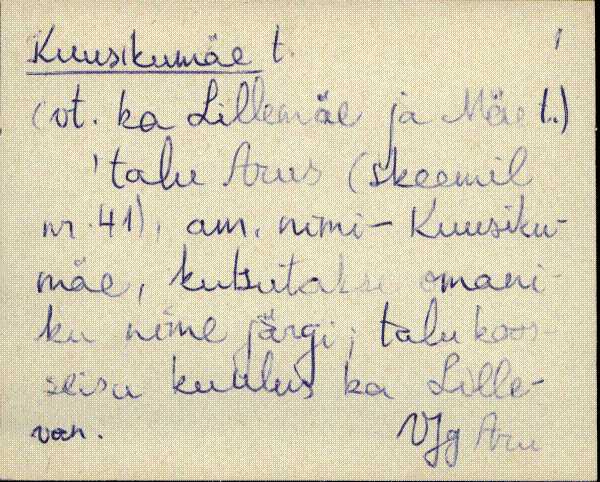 Kuusikumäe t. 1
(vt. ka Lillemäe ja Mäe t.)
'talu Arus (skeemil
nr. 41), am. nimi - Kuusiku-
mäe, kutsutakse omani-
ku nime järgi; talu koos-
seisu kuulus ka Lille-
van. VJg Aru